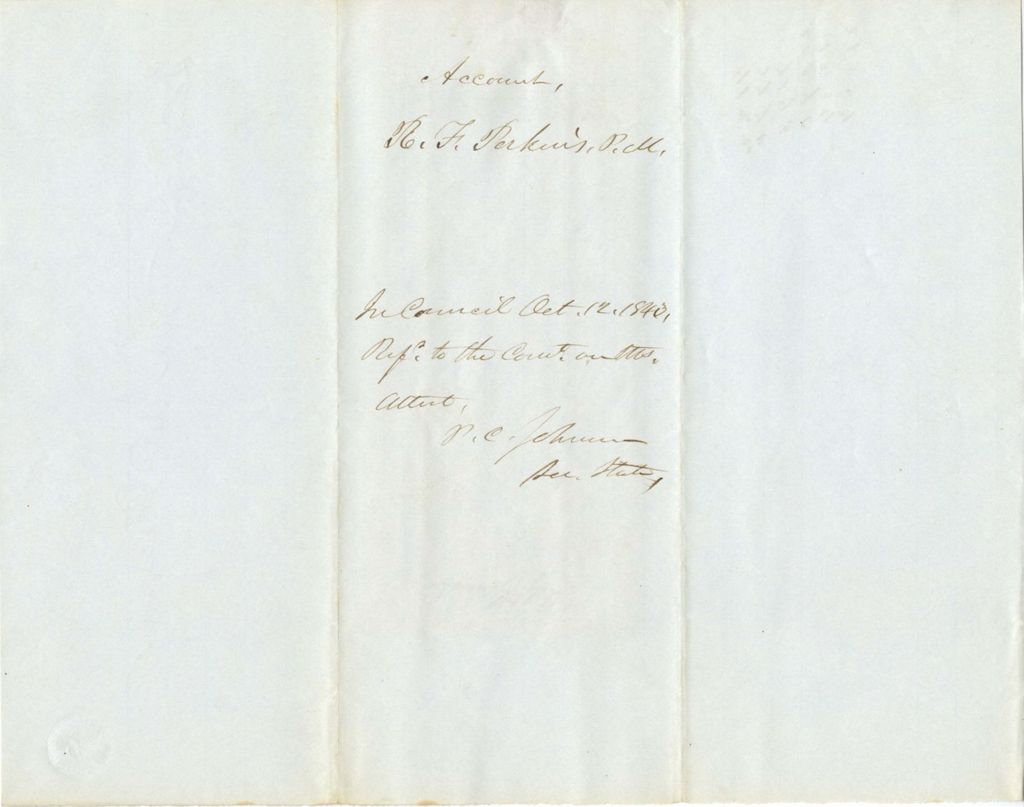 Account,
R. F. Perkins, P. M.
In Council Oct. 12. 1843,
Refd. to the Comt. on
Attest,
P. C. Johnson
Sec. State,